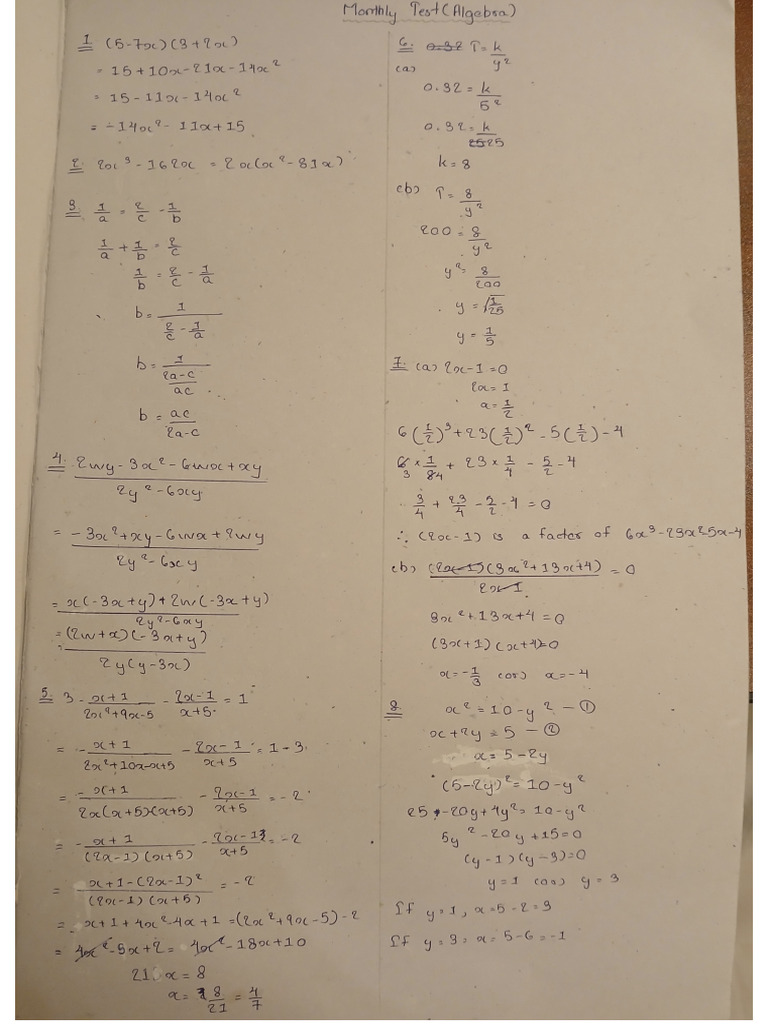 Monthly Test (Algebra)
1. (5-7x)(3+2x)
= 15+10x-21x-14x²
= 15-11x-14x²
= -14x²-11x+15
2. 2x³-162x = 2x(x²-81x)
3. 1/a = 2/c - 1/b
1/a + 1/b = 2/c
1/b = 2/c - 1/a
b = 1/(2/c - 1/a)
b = 1/((2a-c)/ac)
b = ac/(2a-c)
4. (2wy-3x²-6wx+xy)/(2y²-6xy)
= (-3x²+xy-6wx+2wy)/(2y²-6xy)
= (x(-3x+y)+2w(-3x+y))/(2y²-6xy)
= ((2w+x)(-3x+y))/(2y(y-3x))
5. 3 - (x+1)/(2x²+9x-5) - (2x-1)/(x+5) = 1
= -(x+1)/(2x²+10x-x+5) - (2x-1)/(x+5) = 1-3
= -(x+1)/(2x(x+5)(x+5) - (2x-1)/(x+5) = -2
= -(x+1)/((2x-1)(x+5)) - (2x-1)/(x+5) = -2
= (x+1-(2x-1)²)/((2x-1)(x+5)) = -2
= x+1+4x²-4x+1 = (2x²+9x-5)-2
= 4x²-3x+2 = 4x²-18x+10
21 x = 8
x = 8/21 = 4/7
6. 0.32 T = k/y²
(a)
0.32 = k/5²
0.32 = k/25
k = 8
(b) T = 8/y²
200 = 8/y²
y² = 8/200
y = √(1/25)
y = 1/5
7. (a) 2x-1=0
2x = 1
x = 1/2
6(1/2)³+23(1/2)²-5(1/2)-4
6 3 × 1/8 4 + 23 × 1/4 - 5/2 - 4
3/4 + 23/4 - 5/2 - 4 = 0
∴ (2x-1) is a factor of 6x³-23x²-5x-4
(b) ((2x-1)(3x²+13x+4))/(2x-1) = 0
3x²+13x+4=0
(3x+1)(x+4)=0
x = -1/3 (or) x = -4
8. x² = 10-y² - ①
x+2y = 5 - ②
x = 5-2y
(5-2y)² = 10-y²
25-20y+4y² = 10-y²
5y²-20y+15=0
(y-1)(y-3)=0
y = 1 (or) y = 3
If y = 1, x = 5-2 = 3
If y = 3, x = 5-6 = -1